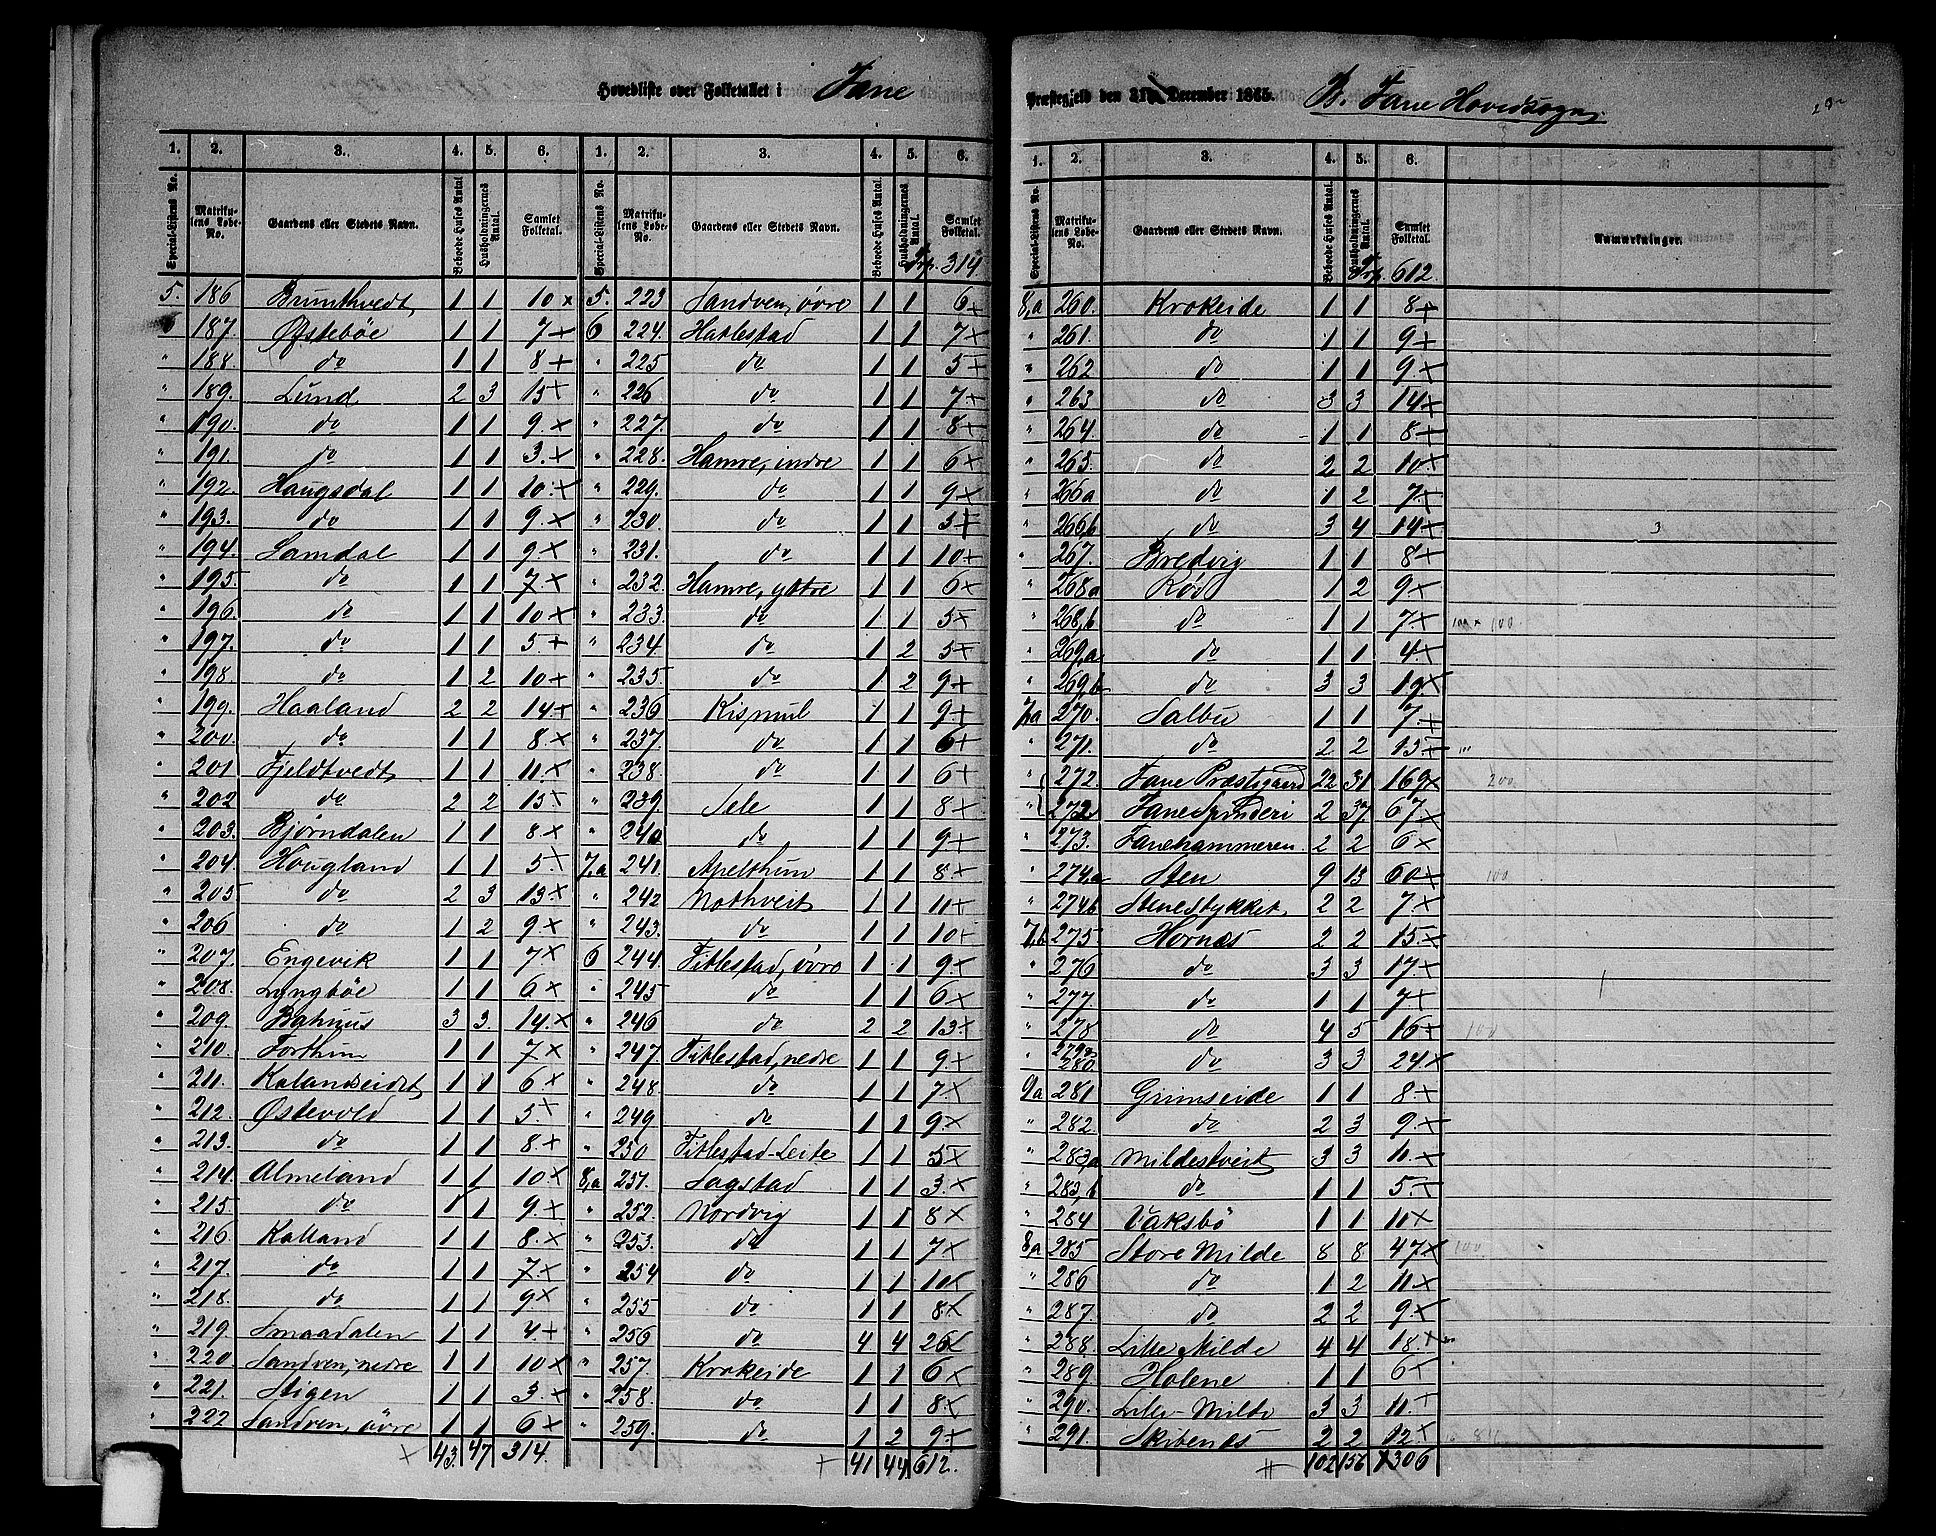 Hovedliste over Folketallet i Fane
1. 2. 3. 4. 5. 6. 1. 2. 3. 4. 5. 6.
Special-Listens No. Matrikulens Løbe-No. Gaardens eller Stedets Navn. Beboede Huses Antal Husholdningernes Antal. Samlet Folketal. Special-Listens No. Matrikulens Løbe-No. Gaardens eller Stedets Navn. Beboede Huses Antal. Husholdningernes Antal. Samlet Folketal.
Trsp. 314
5. 186 Brunthvedt, 1 1 10 × 5. 223 Sandven, övre 1 1 6 +
187. Østeböe 1 1 7 + 6 224. Hatlestad 1 1 7 ×
" 188. do 1 1 8 + " 225 do 1 1 5 +
" 189. Lund 2 3 15 + " 226. do 1 1 7 ×
" 190. do 1 1 9. × " 227. do 1 1 8 +
" 191. do 1 1 3. × " 228. Hamre, indre 1 1 6 ×
" 192. Haugsdal 1 1 10. × " 229. do 1 1 9 ×
" 193. do 1 1 9. × " 230. do 1 1 5 +
" 194. Samdal 1 1 9 × " 231. do 1 1 10 +
" 195 do 1 1 7 × " 232. Hamre, yttre 1 1 6 ×
" 196. do 1 1 10 × " 233. do 1 1 5 ×
" 197. do 1 1 5. + " 234 do 1 2 5 ×
" 198. do 1 2 10 + " 235. do 1 2 9 +
" 199. Haaland 2 2 14 + " 236 Kismul 1 1 9. +
" 200. do 1 1 8. × " 237. do 1 1 6 +
" 201 Fjeldtvedt 1 1 11. × " 238. do 1 1 6 +
" 202 do 2 2 15 × " 239. Sele 1 1 8 ×
" 203. Bjørndalen 1 1 8. × " 240 do 1 1 9 +
" 204. Hougland 1 1 5. × 7,a 241. Apelthun 1 1 8 ×
" 205 do 2 3 13. × " 242 Nothveit 1 1 11 +
" 206 do 1 2 9 × " 243. do 1 1 10 +
" 207. Engevik 1 1 7 × 6 244. Titlestad, övre 1 1 9. ×
" 208. Lyngböe 1 1 6 × " 245 do 1 1 6 ×
" 209. Bahuus 3 3. 14. × " 246 do 2 2 13 ×
" 210. Forthun 1 1 7 × " 247. Titlestad, nedre 1 1 9 ×
" 211. Kalandseidet 1 1 6 × " 248. do 1 1 7. ×
" 212. Østevold 1 1 5. × " 249 do 1 1 9 ×
" 213. do 1 1 8. + " 250 Titlestad-Leite 1 1 5 ×
" 214. Almeland 1 1 10 × 8,a 251. Sagstad 1 1 3. ×
" 215. do 1 1 9. + " 252. Nordvig 1 1 8 ×
" 216 Kalland 1 1 8. × " 253. do 1 1 7 ×
" 217. do 1 1 7. × " 254 do 1 1 10 ×
" 218. do 1 1 9 × " 255 do 1 1 8. ×
" 219. Smaadalen 1 1 4. + " 256 do 4 4 26 ×
" 220 Sandven, nedre 1 1 10 × " 257. Krokeide 1 1 6 ×
" 221. Stigen 1 1 3. × " 258. do 1 1 8 ×
" 222 Sandven, övre 1 1 6 × " 259. do 1 2 9. +
× 43. 47 314. + 41 44 612.
Præstegjeld den 31te December 1865. B. Fane Hovedsogn.
1. 2. 3. 4. 5. 6.
Special-Listens No. Matrikulens Løbe-No. Gaardens eller Stedets Navn. Beboede Huses Antal. Husholdningernes Antal. Samlet Folketal. Anmærkninger.
Trsp. 612.
8,a 260. Krokeide 1 1 8 +
" 261. do 1 1 9 +
" 262 do 1 1 9 ×
" 263 do 3 3 14 ×
" 264. do 1 1 8 +
" 265. do 2 2 10 ×
" 266a do 1 2 7. ×
" 266,b do 3 4 14 × 3
" 267. Bredvig 1 1 8 +
" 268a Røs 1 2 9 ×
" 268,b do 1 1 7. × 100 × 100
" 269,a do 1 1 4. ×
" 269,b do 3 3 19 ×
7,a 270. Salbu 1 1 7. +
" 271. do 2 2 15. +
" 272. Fane Præstegaard 22 31 169 × 200
" 272b Fane Spinderi 2 37 67 ×
" 273. Fanehammeren. 2 2 6 ×
" 274,a Sten 9 13 60 × 100
" 274b Stenestykket 2 2 7. ×
7,b 275 Hornæs 2 2 15. ×
" 276 do 3 3 17. ×
" 277 do 1 1 7 ×
" 278 do 4 5 16 + 100
" 279 280 do 3 3 24 ×
9a 281 Grimseide 1 1 8. ×
" 282. do 2 3 9. ×
" 283,a Mildestveit 3 3 11. ×
" 283,b do 1 1 5. ×
" 284 Vaksbö 1 1 11 ×
8,a 285 Store Milde 8 8 47 × 100
" 286 do 1 2 11 ×
" 287. do 2 2 9. ×
" 288. Lille Milde 4 4 18. ×
" 289 Holene 1 1 6 ×
" 290. Lille-Milde 3 3 11. +
" 291. Skibenæs 2 2 12. ×
102 156 1306